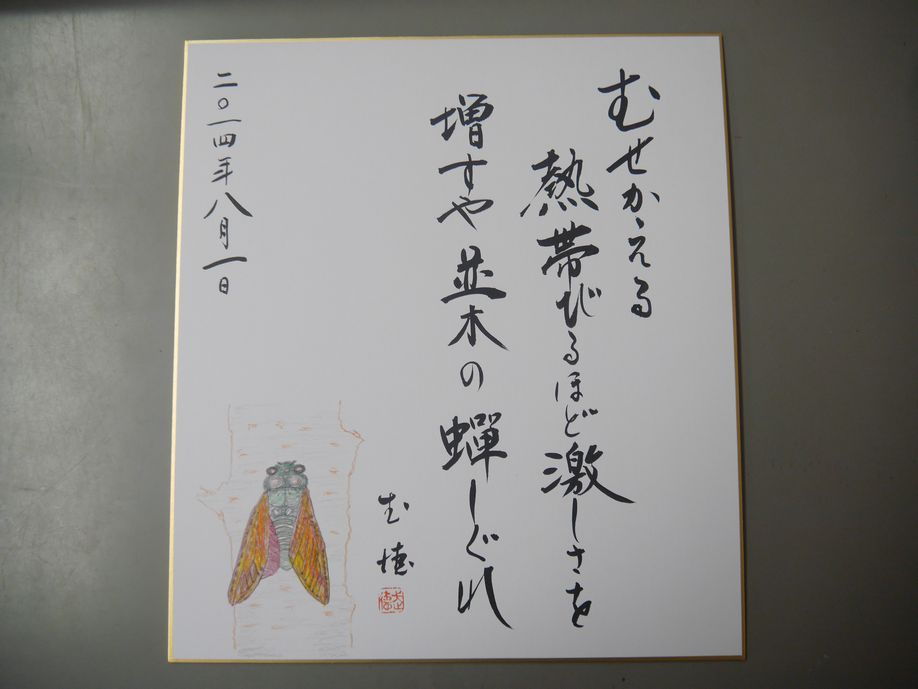 むせかえる
熱帯びるほど激しさを
増すや並木の蟬しぐれ
武徳
二〇一四年八月一日